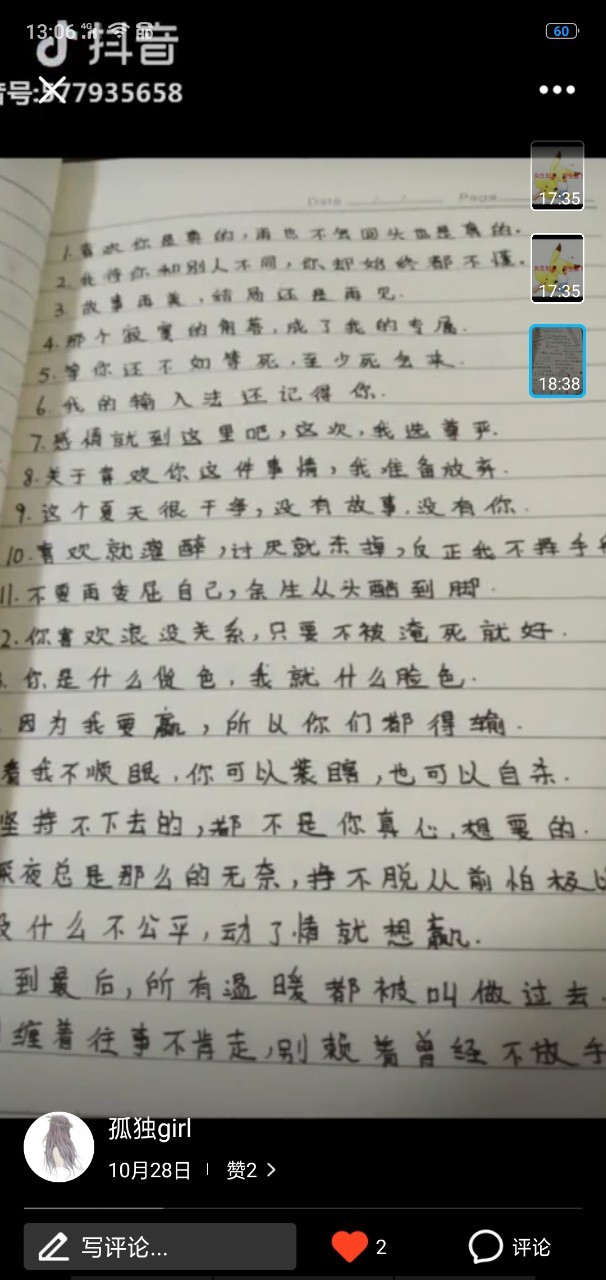 13:06 4G 60
抖音
音号:577935658
•••
Date Page
17:35
17:35
18:38
1.喜欢你是真的,再也不会回头也是真的。
2.我待你和别人不同,你却始终都不懂。
3.故事再美,结局还是再见.
4.那个寂寞的角落,成了我的专属.
5.等你还不如等死,至少死会来.
6.我的输入法还记得你.
7.感情就到这里吧,这次,我选尊严.
8.关于喜欢你这件事情,我准备放弃.
9.这个夏天很干净,没有故事.没有你.
10.喜欢就灌醉,讨厌就杀掉,反正我不择手
11.不要再委屈自己,余生从头酷到脚.
2.你喜欢浪没关系,只要不被淹死就好.
.你是什么货色.我就什么脸色.
因为我要赢,所以你们都得输.
看我不顺眼.你可以装瞎,也可以自杀.
坚持不下去的,都不是你真心.想要的.
深夜总是那么的无奈,挣不脱从前怕极
没什么不公平,动了情就想赢.
到最后,所有温暖都被叫做过去.
缠着往事不肯走,别赖着曾经不放手
孤独girl
10月28日 | 赞2 >
写评论... 2 评论